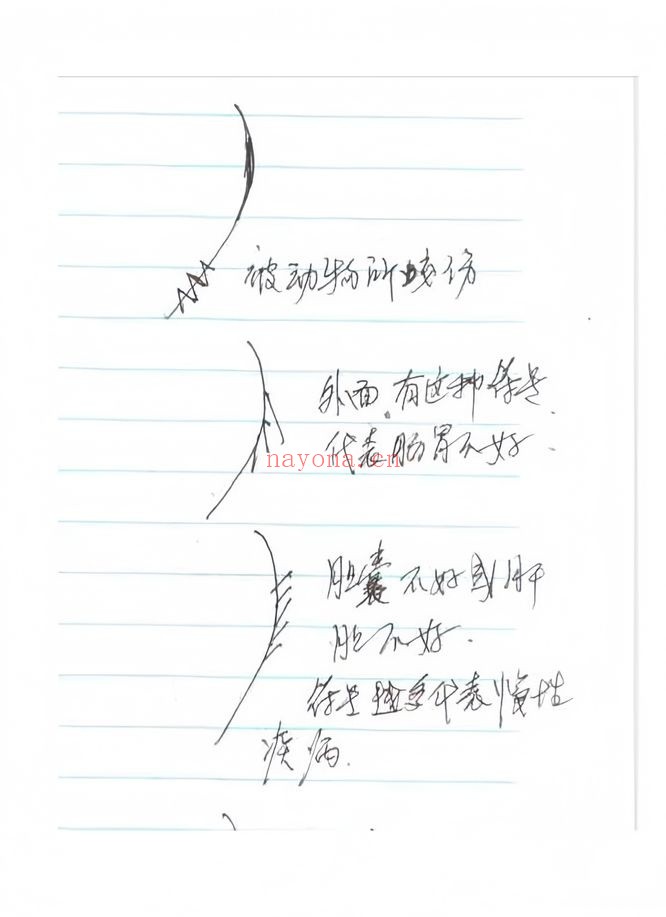 被动物所咬伤
外面。有这种符号.
代表肠胃不好.
nayona.cn
胆囊不好或肝
胆不好.
符号越多代表慢性
疾病.